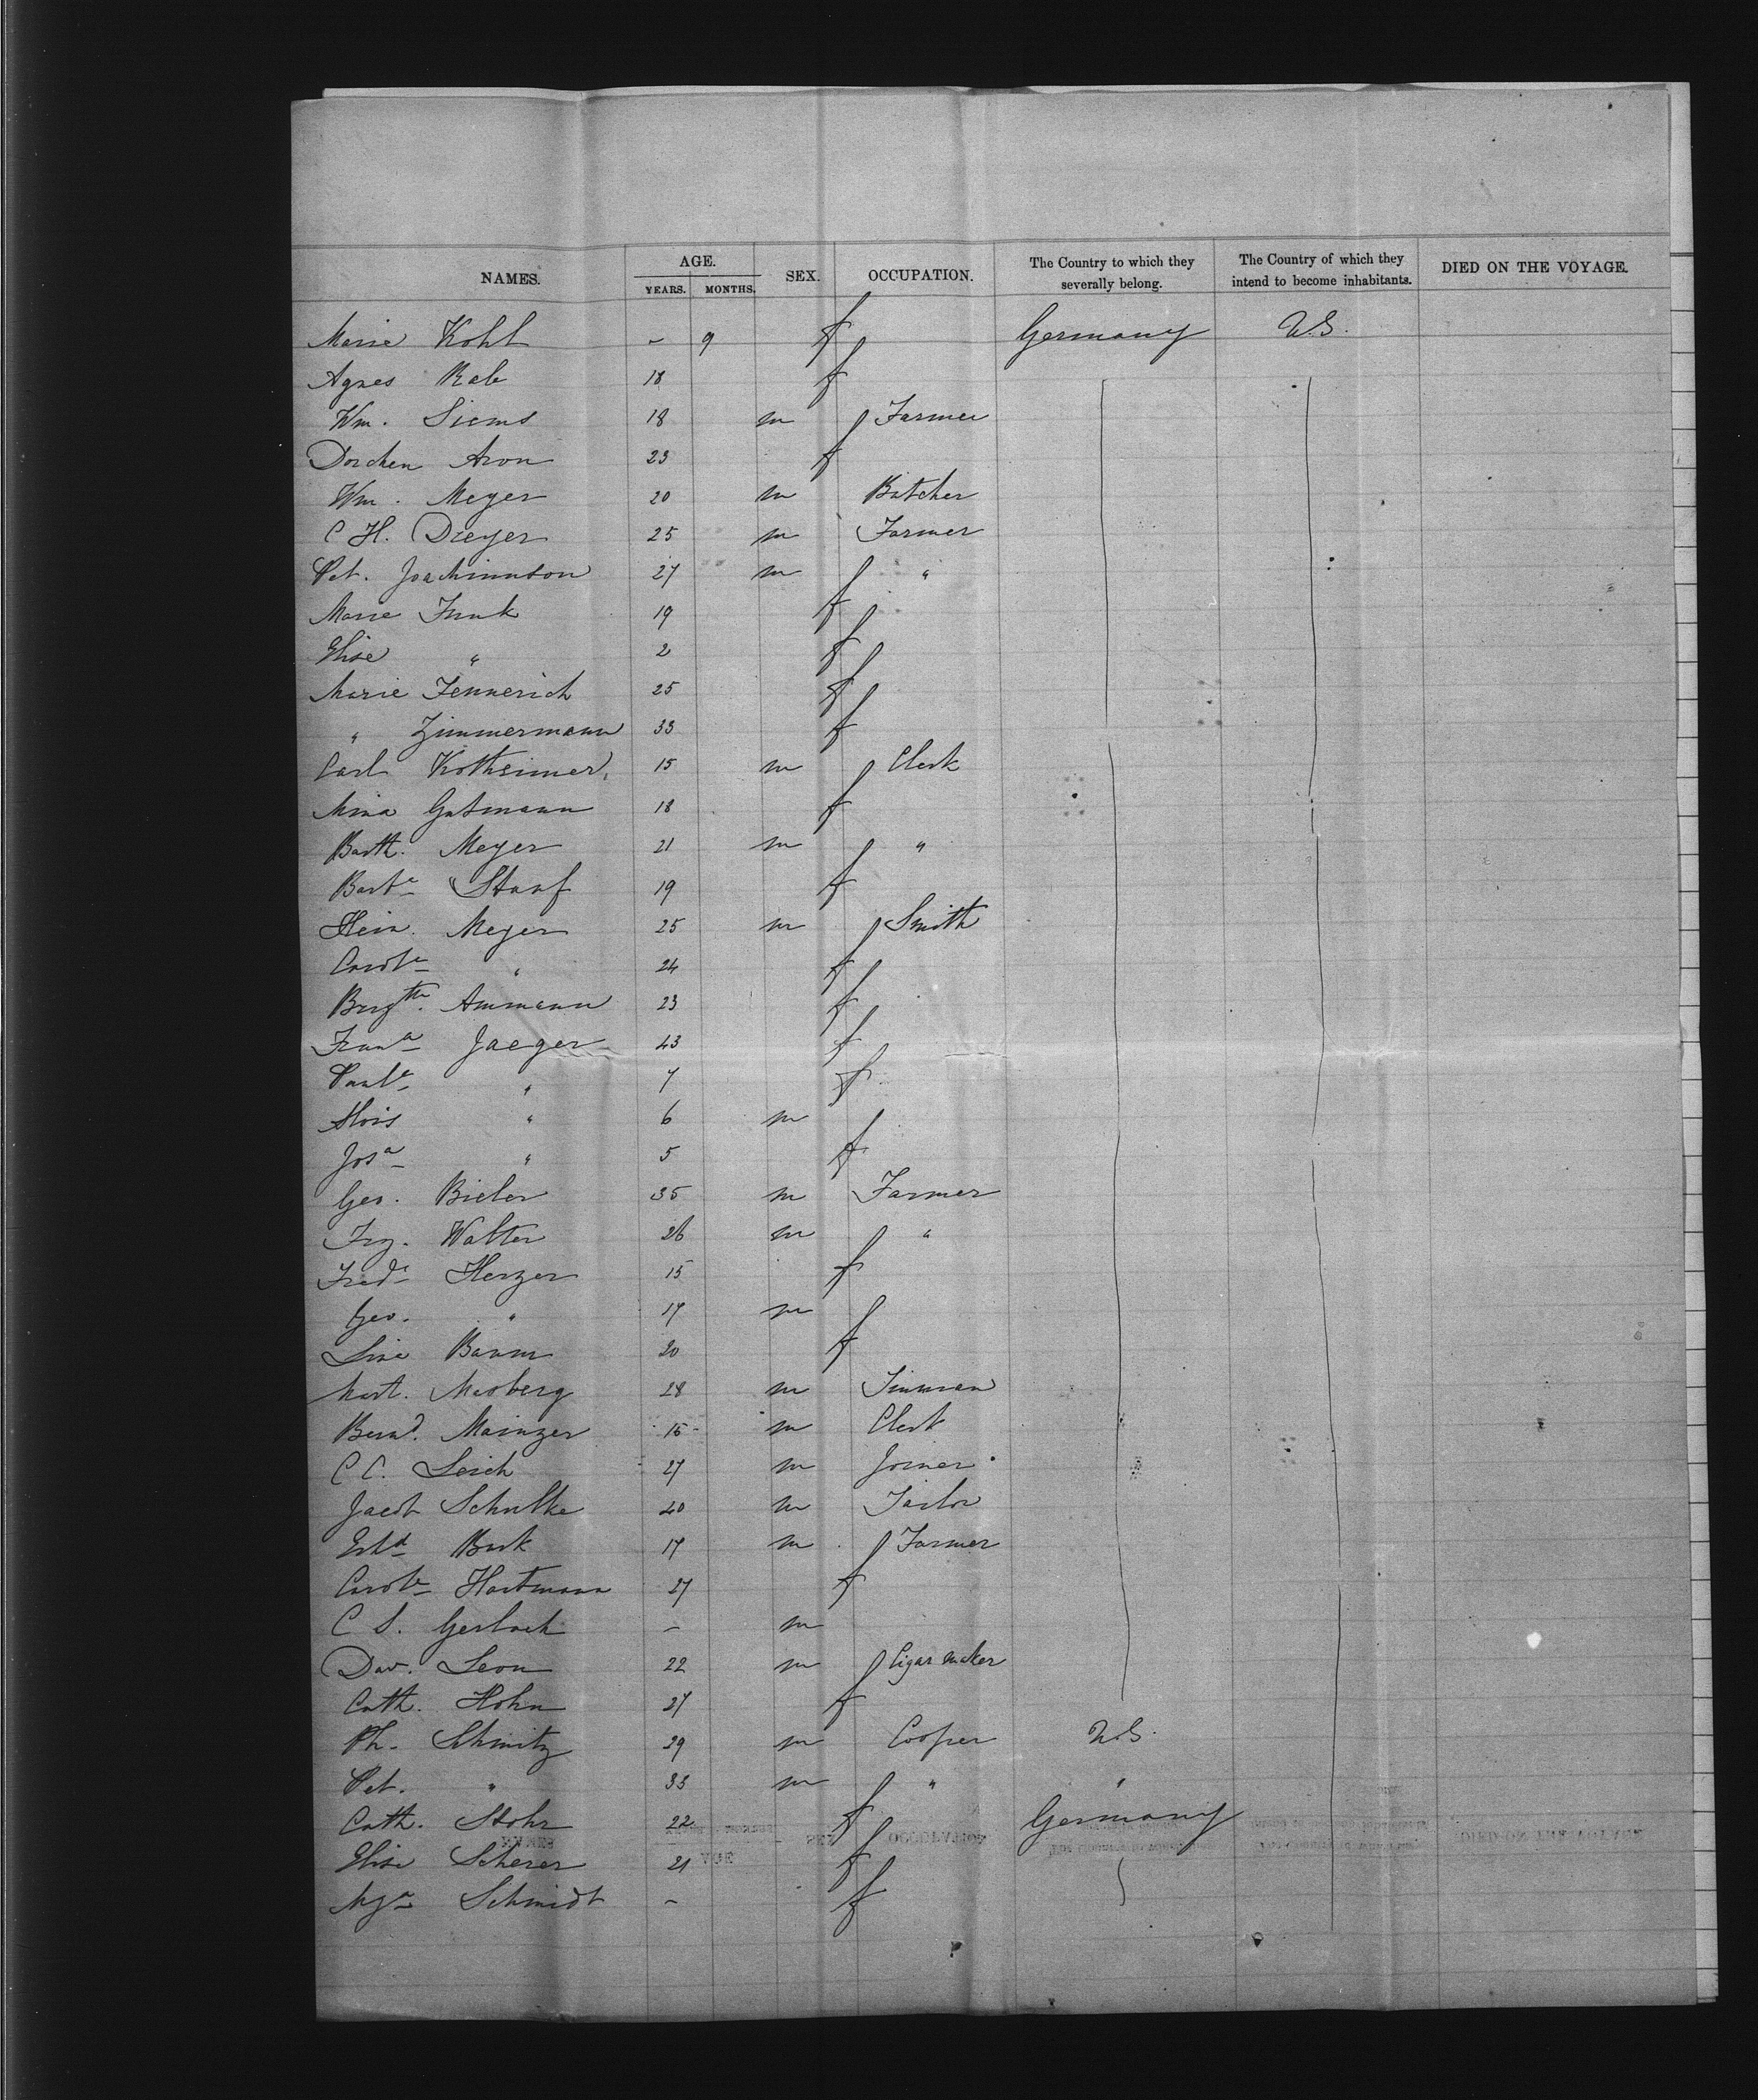 NAMES. AGE. YEARS. MONTHS. SEX. OCCUPATION. The Country to which they severally belong. The Country of which they intend to become inhabitants. DIED ON THE VOYAGE.
Marie Kohl – 9 f Germany U.S.
Agnes Rabe 18 f
Wm. Siems 18 m Farmer
Dorchen Aron 23 f
Wm. Meyer 20 m Butcher
C H. Dreyer 25 m Farmer
Pet. Joachimnson 27 m "
Marie Funk 19 f
Elise " 2 f
Marie Fennerich 25 f
" Zimmermann 33 f
Carl Kotheimer 15 m Clerk
Mina Gutmann 18 f
Barth. Meyer 21 m "
Barba Stauf 19 f
Hein. Meyer 25 m Smith
Carole " 24 f
Brigthe. Ammann 23 f
Frana Jaeger 43 f
Paule " 7 f
Alois " 6 m
Josa " 5 f
Geo. Bieler 35 m Farmer
Frz. Walter 26 m "
Frede Herzer 15 f
Geo. " 17 m
Line Baum 20 f
Mart. Masberg 28 m Tinman
Bernd. Mainzer 15 m Clerk
C C. Leich 27 m Joiner
Jacob Schulke 40 m Tailor
Edd Burk 17 m Farmer
Carole Hartmann 27 f
C S. Gerlach – m
Dav. Leon 22 m Cigar maker
Cath. Hohn 27 f
Ph. Schmitz 29 m Cooper U.S.
Pet. " 33 m " "
Cath. Stohr 22 f Germany
Elise Scherer 21 f
Schmidt – f